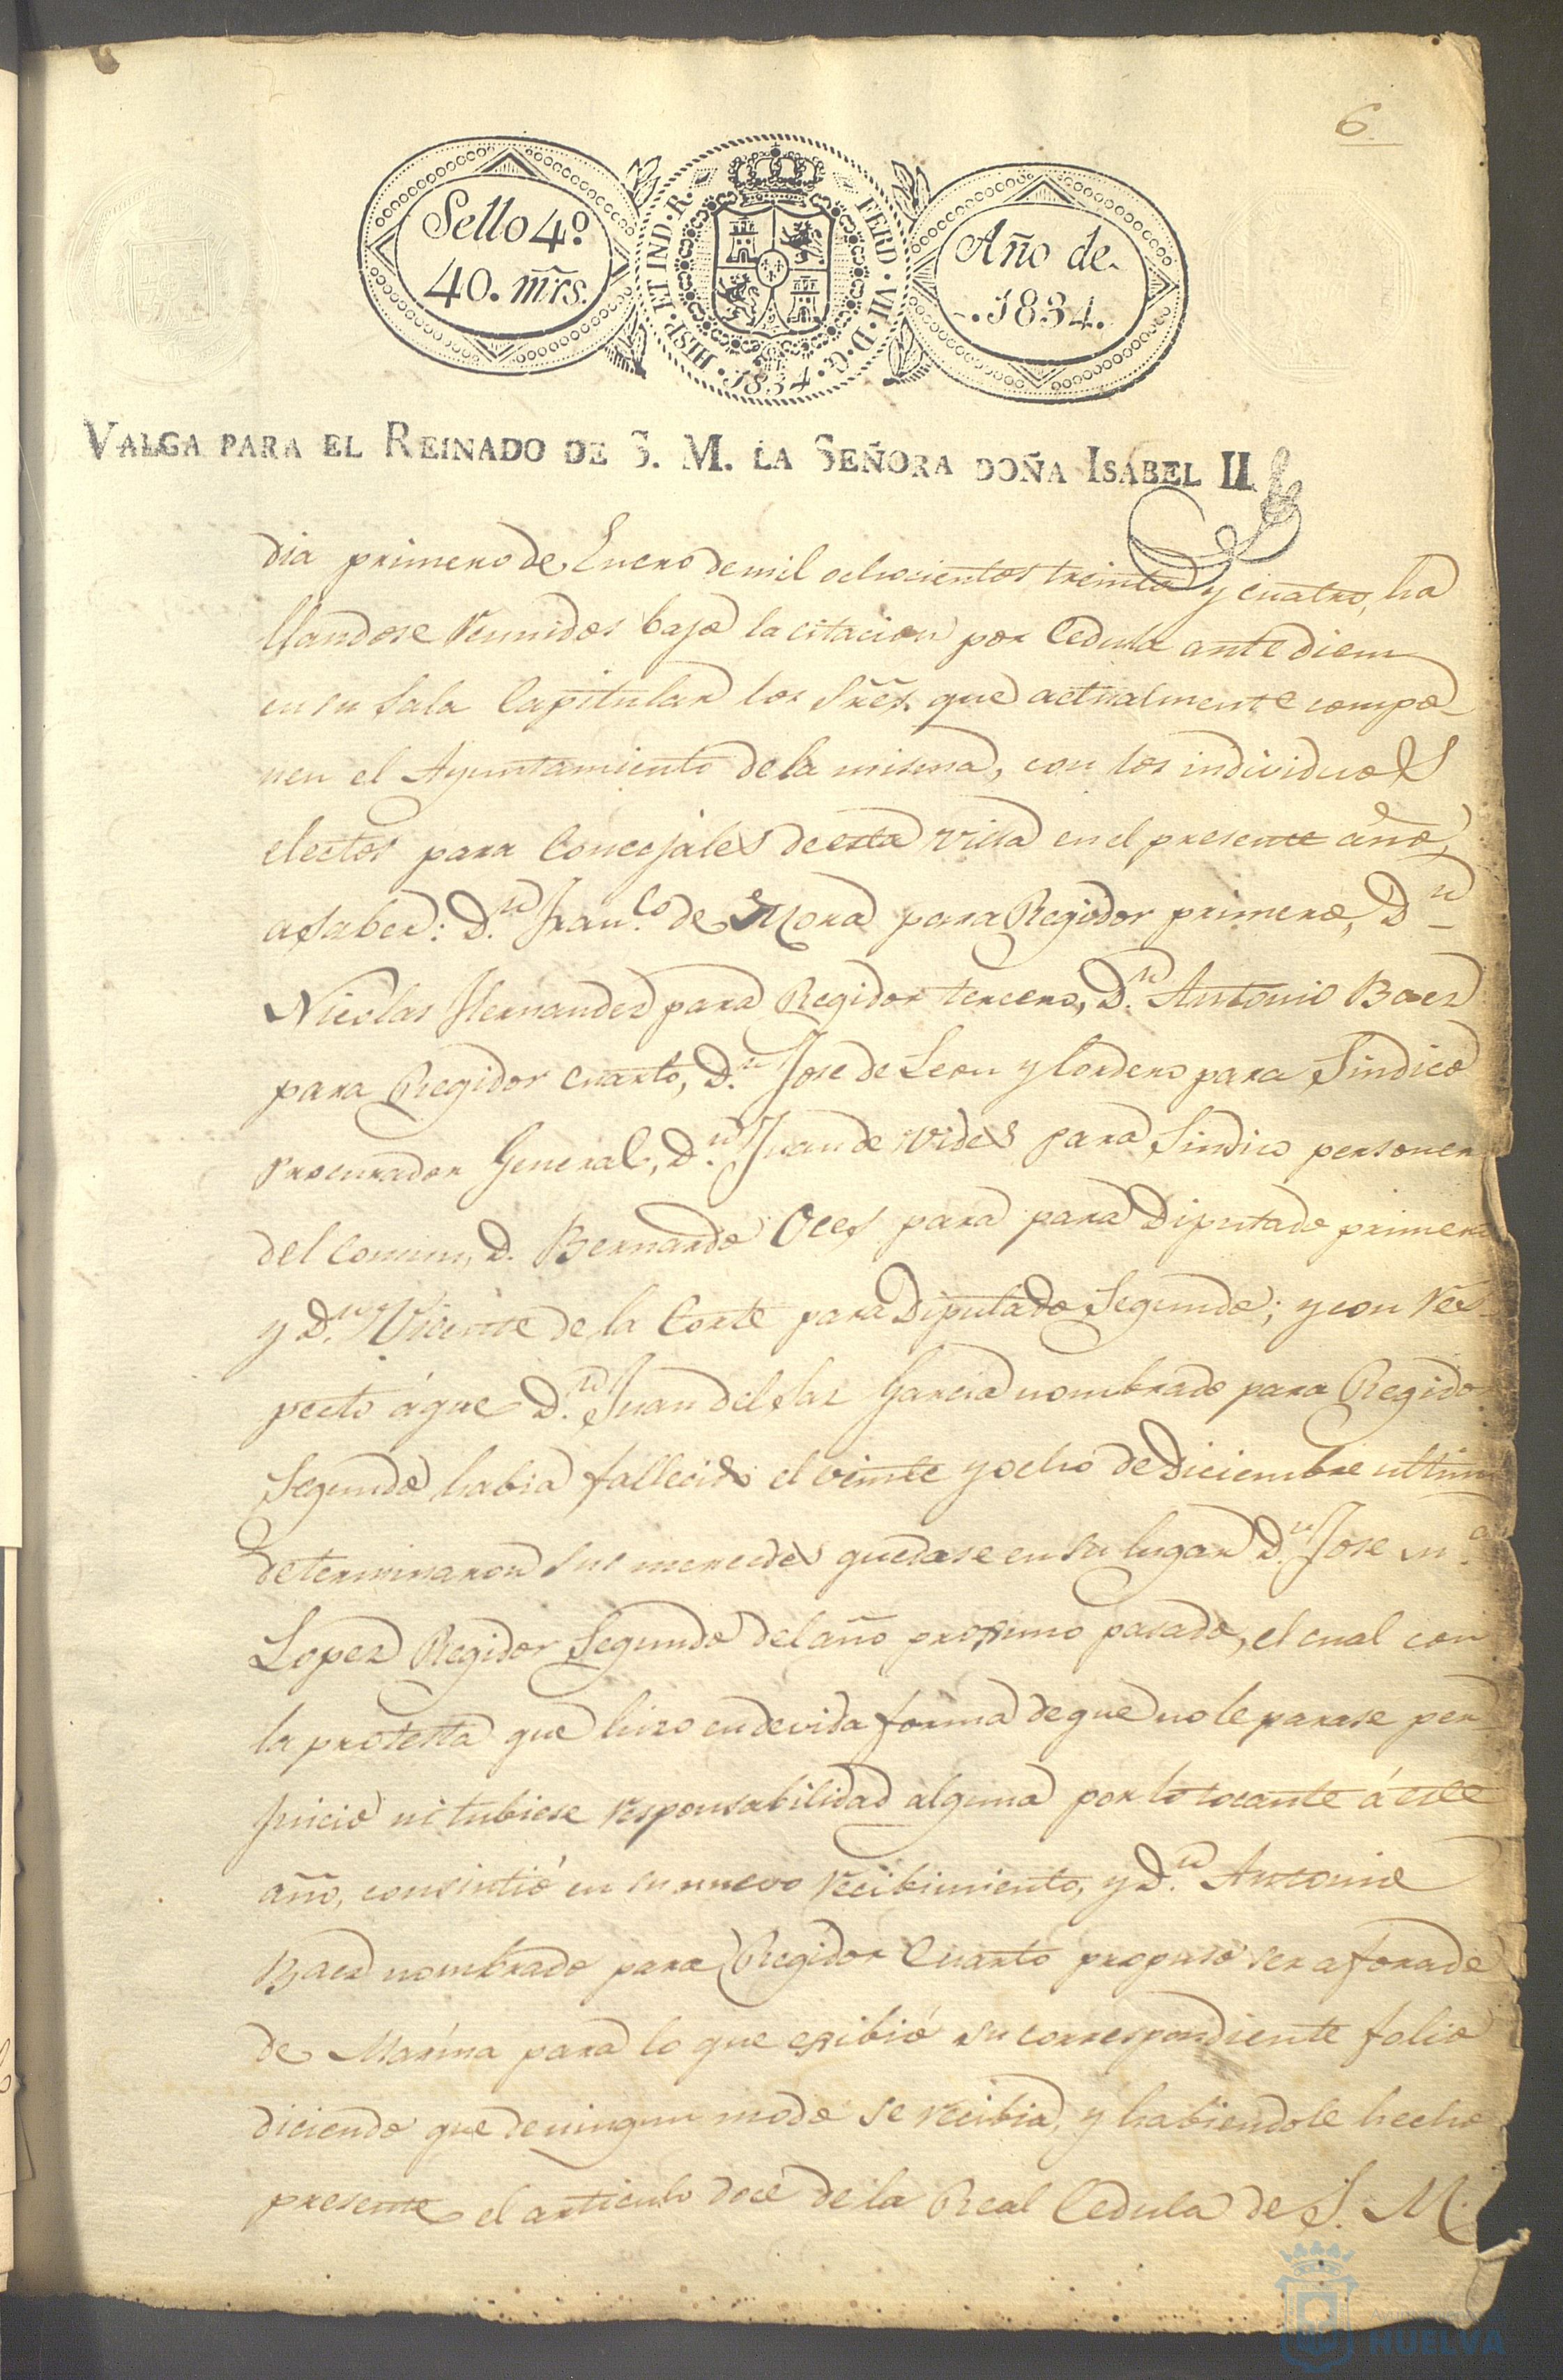 6.
Sello 4º
40. mrs.
HISP. ET IND. R. FERD. VII. D. G. 1834.
Año de
1834.
VALGA PARA EL REINADO DE S. M. LA SEÑORA DOÑA ISABEL II
dia primero de Enero de mil ochocientos treinta y cuatro, ha
llandose reunidos bajo la citacion por Cedula ante diem
en su Sala Capitular los Sres. que actualmente compo
nen el Ayuntamiento de la misma, con los individuos
electos para Concejales de esta villa en el presente año,
a saber: D.n Fran.co de Mora para Regidor primero, D.n
Nicolas Hernandez para Regidor tercero, D.n Antonio Baez
para Regidor cuarto, D.n Jose de Leon y Cordero para Sindico
Procurador General, D.n Juan de Vides para Sindico personer
del Comun, D. Bernardo Oces para para Diputado primero
y D.n Vicente de la Corte para Diputado Segundo; y con res-
pecto á que D.n Juan del Saz Garcia nombrado para Regidor
Segundo habia fallecido el veinte y ocho de Diciembre ultimo
determinaron sus mercedes quedase en su lugar D.n Jose M.a
Lopez Regidor Segundo del año proximo pasado, el cual con
la protesta que hizo en devida forma de que no le parase per
juicio ni tubiese responsabilidad alguna por lo tocante á este
año, consintió en su nuevo recibimiento, y D.n Antonio
Baez nombrado para Regidor Cuarto propuso ser aforado
de Marina para lo que exibió su correspondiente folio
diciendo que de ningun modo se recibia, y habiendole hecho
presente el articulo doce de la Real Cedula de S. M.
HUELVA